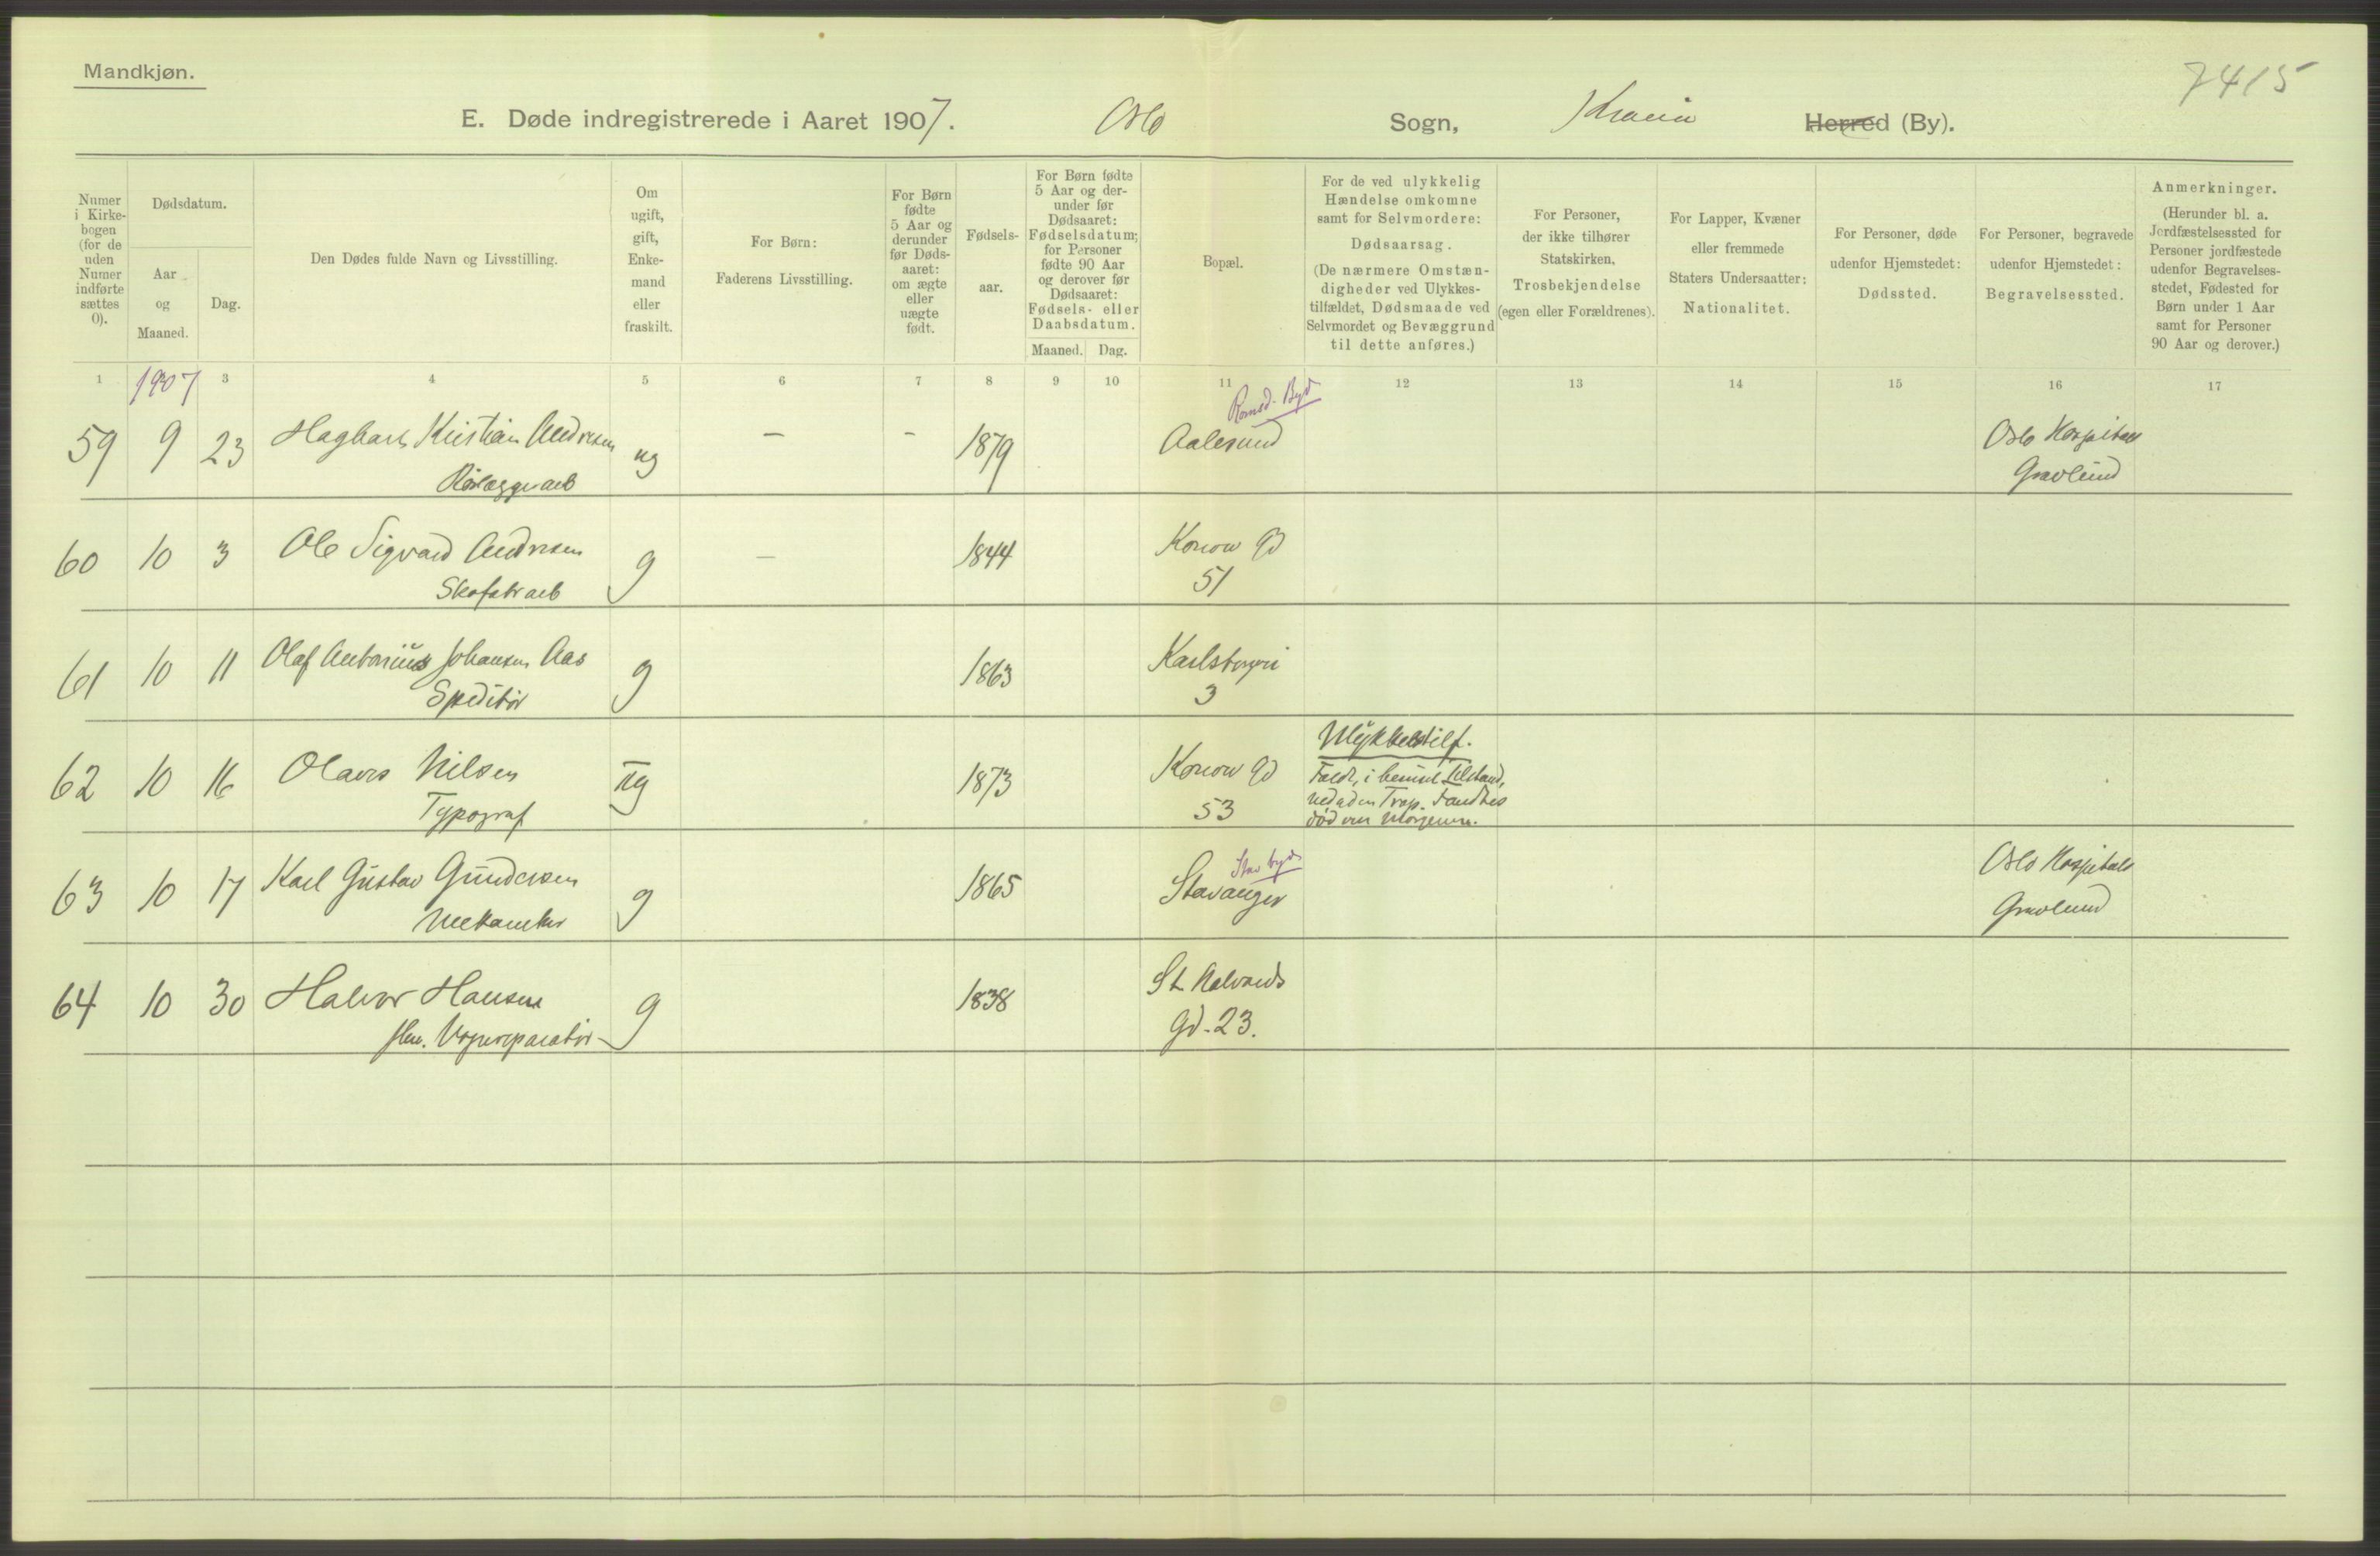 Mandkjøn.
7415
E. Døde indregistrerede i Aaret 1907. Oslo Sogn, Krania Herred (By).
Numer i Kirkebogen (for de uden Numer indførte sættes 0).
Dødsdatum.
Aar og Maaned.
Dag.
Den Dødes fulde Navn og Livsstilling.
Om ugift, gift, Enkemand eller fraskilt.
For Børn: Faderens Livsstilling.
For Børn fødte 5 Aar og derunder før Dødsaaret: om ægte eller uægte født.
Fødselsaar.
For Børn fødte 5 Aar og derunder før Dødsaaret: Fødselsdatum; for Personer fødte 90 Aar og derover før Dødsaaret: Fødsels- eller Daabsdatum.
Maaned. Dag.
Bopæl.
For de ved ulykkelig Hændelse omkomne samt for Selvmordere: Dødsaarsag. (De nærmere Omstændigheder ved Ulykkestilfældet, Dødsmaade ved Selvmordet og Bevæggrund til dette anføres.)
For Personer, der ikke tilhører Statskirken, Trosbekjendelse (egen eller Forældrenes).
For Lapper, Kvæner eller fremmede Staters Undersaatter: Nationalitet.
For Personer, døde udenfor Hjemstedet: Dødssted.
For Personer, begravede udenfor Hjemstedet: Begravelsessted.
Anmerkninger. (Herunder bl. a. Jordfæstelsessted for Personer jordfæstede udenfor Begravelsesstedet, Fødested for Børn under 1 Aar samt for Personer 90 Aar og derover.)
1 1907 3 4 5 6 7 8 9 10 11 12 13 14 15 16 17
Romsd. Byd
59 9 23 Hagbart Kristian Andresen ug - - 1879 Aalesund Oslo Hospitals
Rørlæggerarb Gravlund
60 10 3 Ole Sigvard Andresen g - 1844 Konow Gd
Skofabrarb 51
61 10 11 Olaf Antonius Johansen Aas g 1863 Karlsborgvei
Speditør 3
Ulykkestilf.
62 10 16 Olaves Nilsen ug 1873 Konow Gd Faldt, i beruset Tilstand,
Typograf 53 nedad en Trap. Fandtes
død om Morgenen.
Stav byd.
63 10 17 Karl Gustav Gundersen g 1865 Stavanger Oslo Hospitals
Mekaniker Gravlund
64 10 30 Halvor Hansen g 1838 St. Halvards
Vognreparatør Gd. 23.